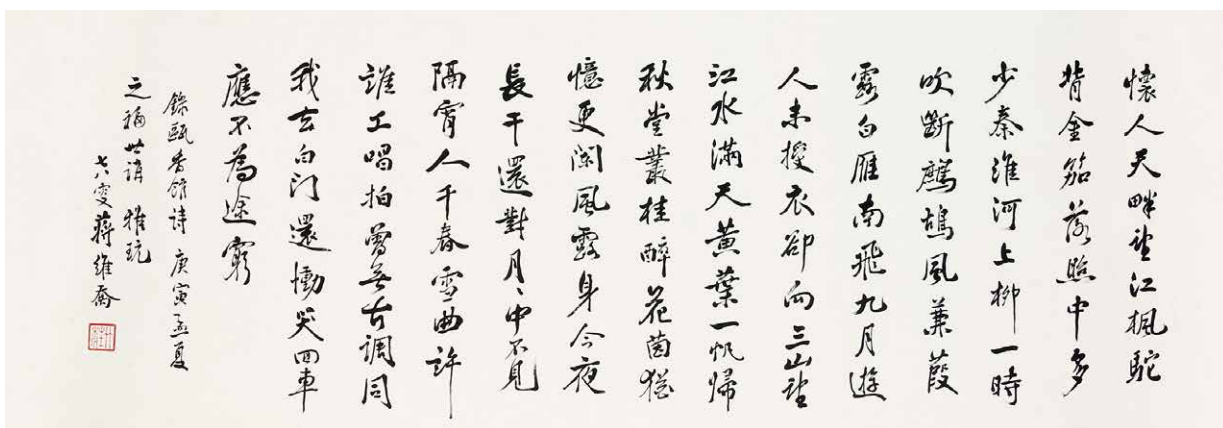 懷人天畔望江楓駝
背金笳落照中多
少秦淮河上柳一時
吹斷鷓鴣風蒹葭
露白雁南飛九月遊
人未授衣卻向三山望
江水滿天黃葉一帆歸
秋堂叢桂醉花茵猶
憶更闌風露身今夜
長干還對月〻中不見
隔宵人千春雪曲許
誰工唱拍曾無古調同
我去白門還慟哭回車
應不為途窮
錄甌香館詩 庚寅孟夏
之福世講 雅玩
七八叟蔣維喬